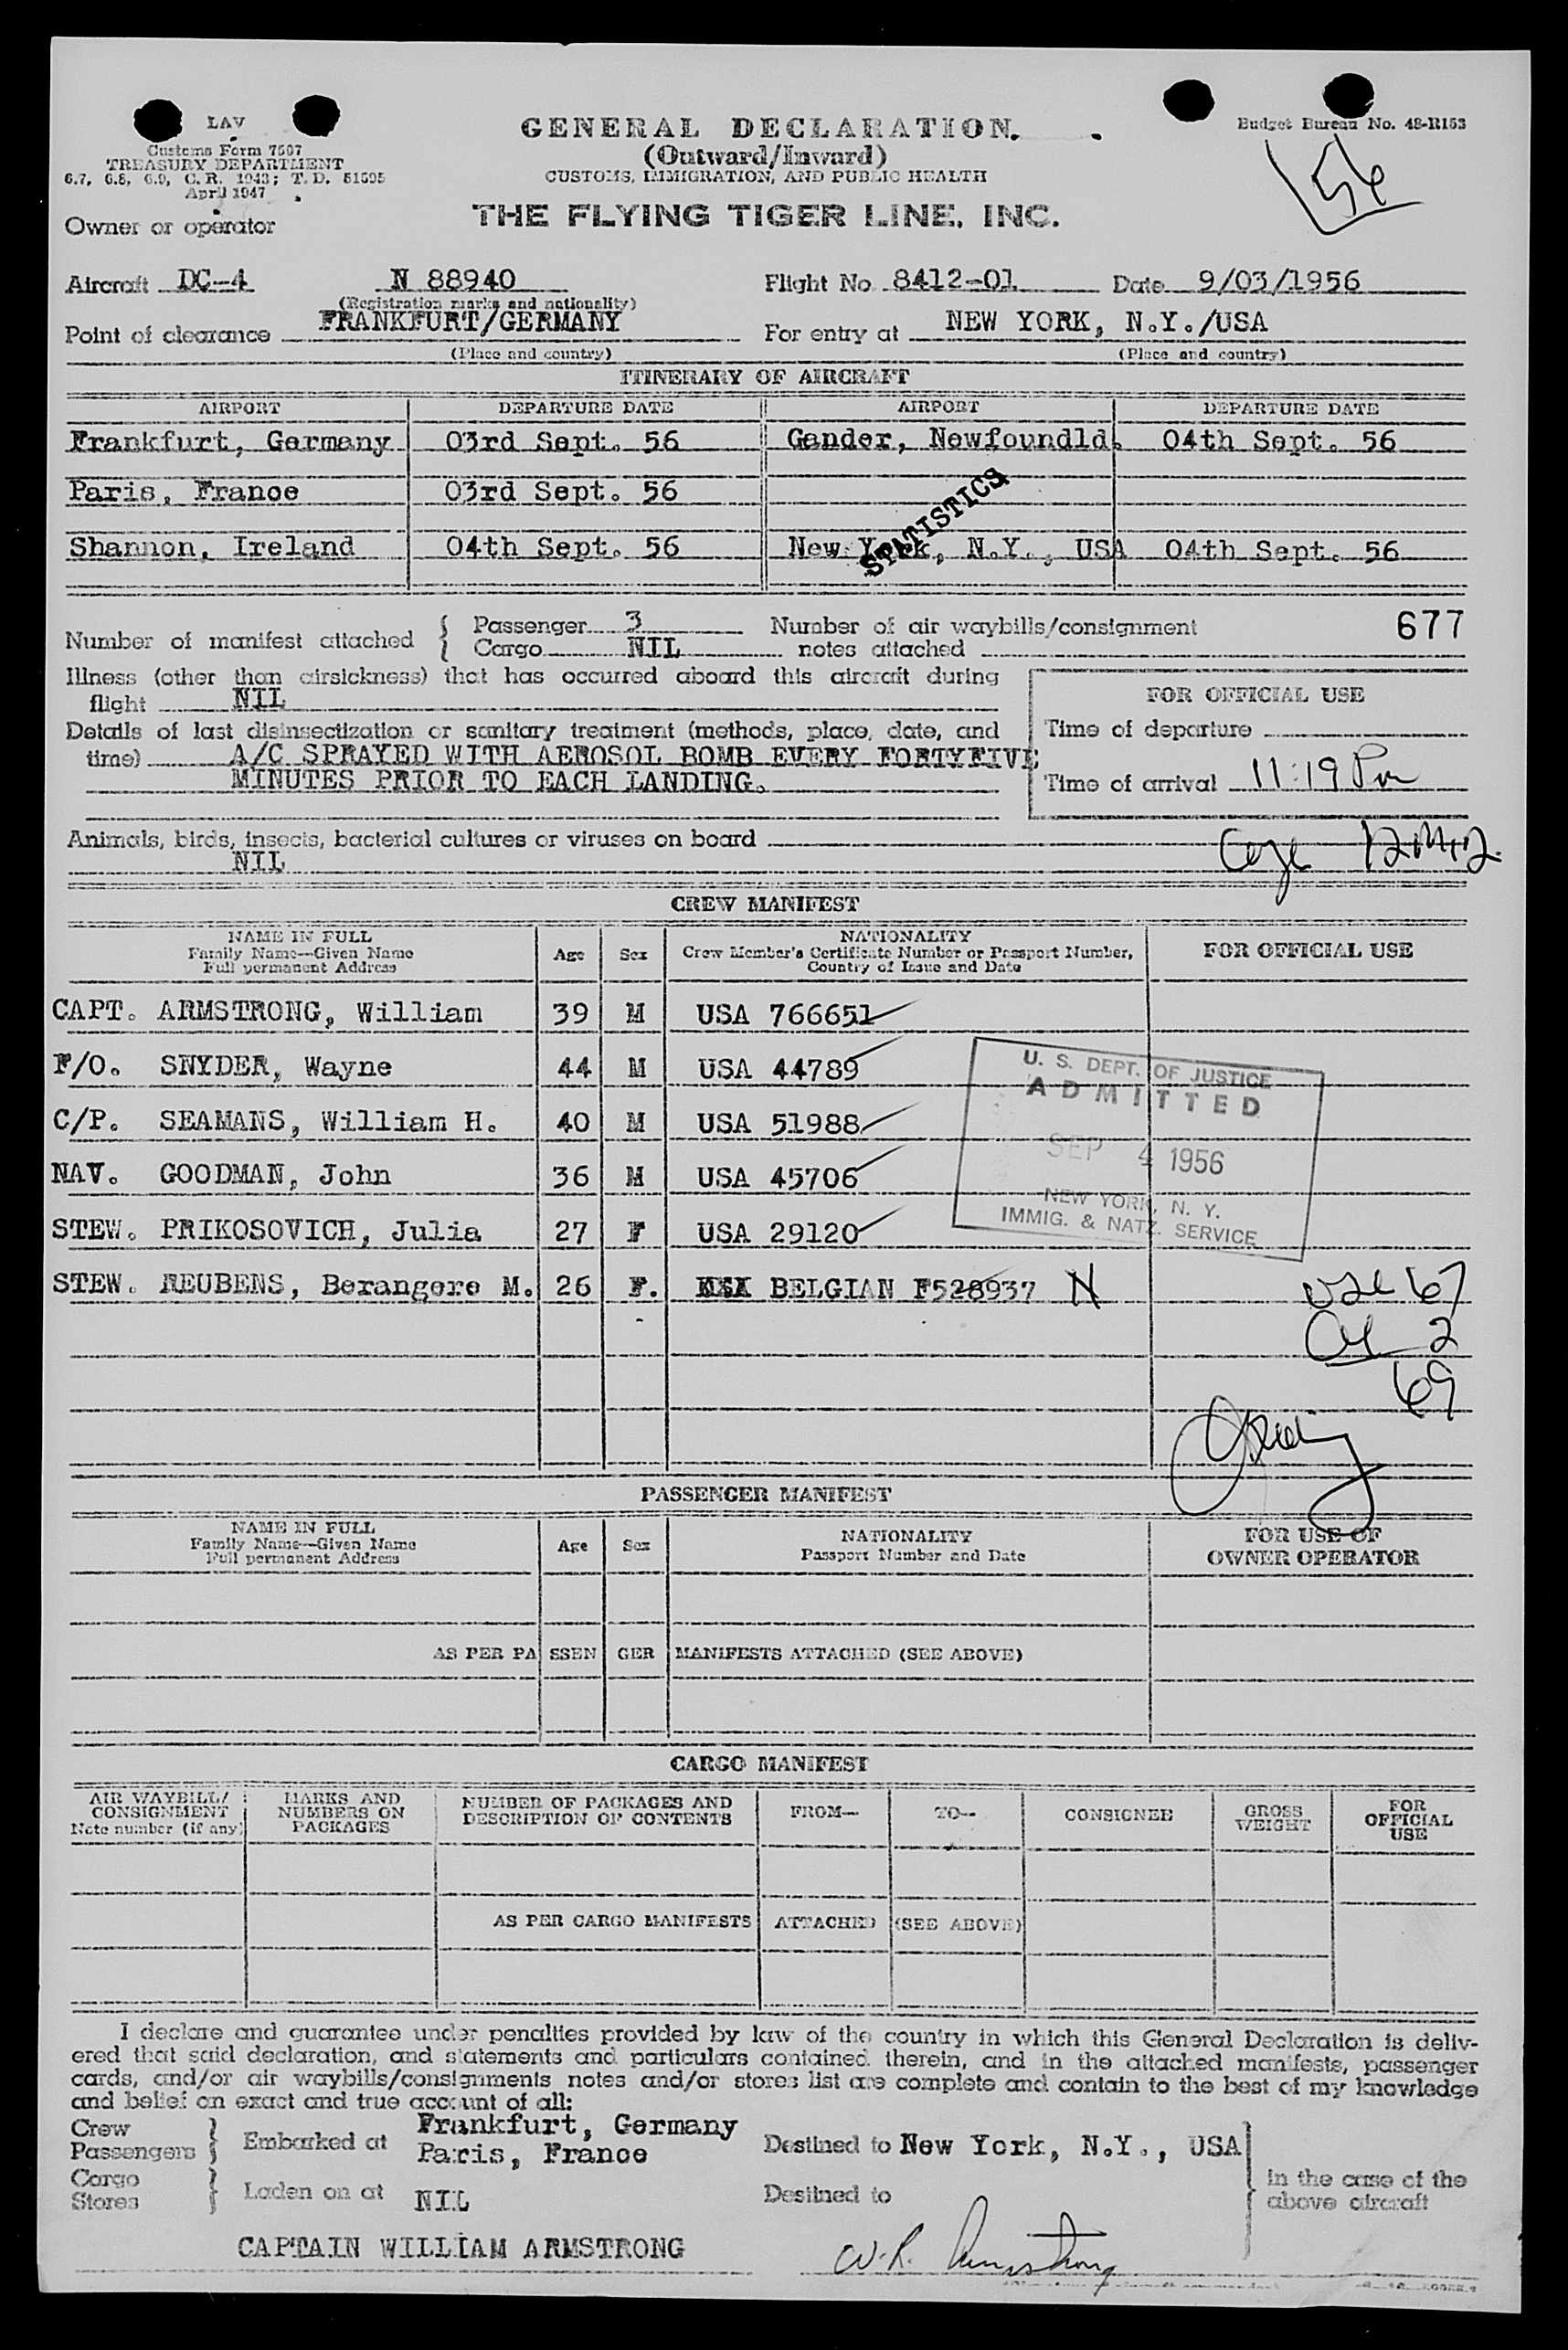 LAV
Customs Form 7507
TREASURY DEPARTMENT
6.7, 6.8, 6.9, C. R. 1943; T. D. 51505
April 1947
GENERAL DECLARATION
(Outward/Inward)
CUSTOMS, IMMIGRATION, AND PUBLIC HEALTH
Budget Bureau No. 48-R153
56
Owner or operator THE FLYING TIGER LINE, INC.
Aircraft DC-4 N 88940 Flight No. 8412-01 Date 9/03/1956
(Registration marks and nationality)
Point of clearance FRANKFURT/GERMANY For entry at NEW YORK, N.Y./USA
(Place and country) (Place and country)
ITINERARY OF AIRCRAFT
AIRPORT DEPARTURE DATE AIRPORT DEPARTURE DATE
Frankfurt, Germany 03rd Sept. 56 Gander, Newfoundld. 04th Sept. 56
Paris, France 03rd Sept. 56
STATISTICS
Shannon, Ireland 04th Sept. 56 New York, N.Y., USA 04th Sept. 56
Number of manifest attached { Passenger 3 Number of air waybills/consignment 677
Cargo NIL notes attached
Illness (other than airsickness) that has occurred aboard this aircraft during
flight NIL
FOR OFFICIAL USE
Details of last disinsectization or sanitary treatment (methods, place, date, and Time of departure
time) A/C SPRAYED WITH AEROSOL BOMB EVERY FORTYFIVE
MINUTES PRIOR TO EACH LANDING. Time of arrival 11:19 Pm
Animals, birds, insects, bacterial cultures or viruses on board
NIL
CREW MANIFEST
NAME IN FULL
Family Name—Given Name
Full permanent Address
Age Sex
NATIONALITY
Crew Member's Certificate Number or Passport Number,
Country of Issue and Date
FOR OFFICIAL USE
CAPT. ARMSTRONG, William 39 M USA 766651
F/O. SNYDER, Wayne 44 M USA 44789
C/P. SEAMANS, William H. 40 M USA 51988
NAV. GOODMAN, John 36 M USA 45706
STEW. PRIKOSOVICH, Julia 27 F USA 29120
STEW. REUBENS, Berangere M. 26 F. BELGIAN F528937 N
U. S. DEPT. OF JUSTICE
ADMITTED
SEP 4 1956
NEW YORK, N. Y.
IMMIG. & NATZ. SERVICE
67
2
69
PASSENGER MANIFEST
NAME IN FULL
Family Name—Given Name
Full permanent Address
Age Sex
NATIONALITY
Passport Number and Date
FOR USE OF
OWNER OPERATOR
AS PER PASSENGER MANIFESTS ATTACHED (SEE ABOVE)
CARGO MANIFEST
AIR WAYBILL/
CONSIGNMENT
Note number (if any)
MARKS AND
NUMBERS ON
PACKAGES
NUMBER OF PACKAGES AND
DESCRIPTION OF CONTENTS
FROM— TO— CONSIGNEE
GROSS
WEIGHT
FOR
OFFICIAL
USE
AS PER CARGO MANIFESTS ATTACHED (SEE ABOVE)
I declare and guarantee under penalties provided by law of the country in which this General Declaration is deliv-
ered that said declaration, and statements and particulars contained therein, and in the attached manifests, passenger
cards, and/or air waybills/consignments notes and/or stores list are complete and contain to the best of my knowledge
and belief an exact and true account of all:
Crew
Passengers } Embarked at Frankfurt, Germany
Paris, France Destined to New York, N.Y., USA
Cargo
Stores } Laden on at NIL Destined to
In the case of the
above aircraft
CAPTAIN WILLIAM ARMSTRONG W. R. Armstrong